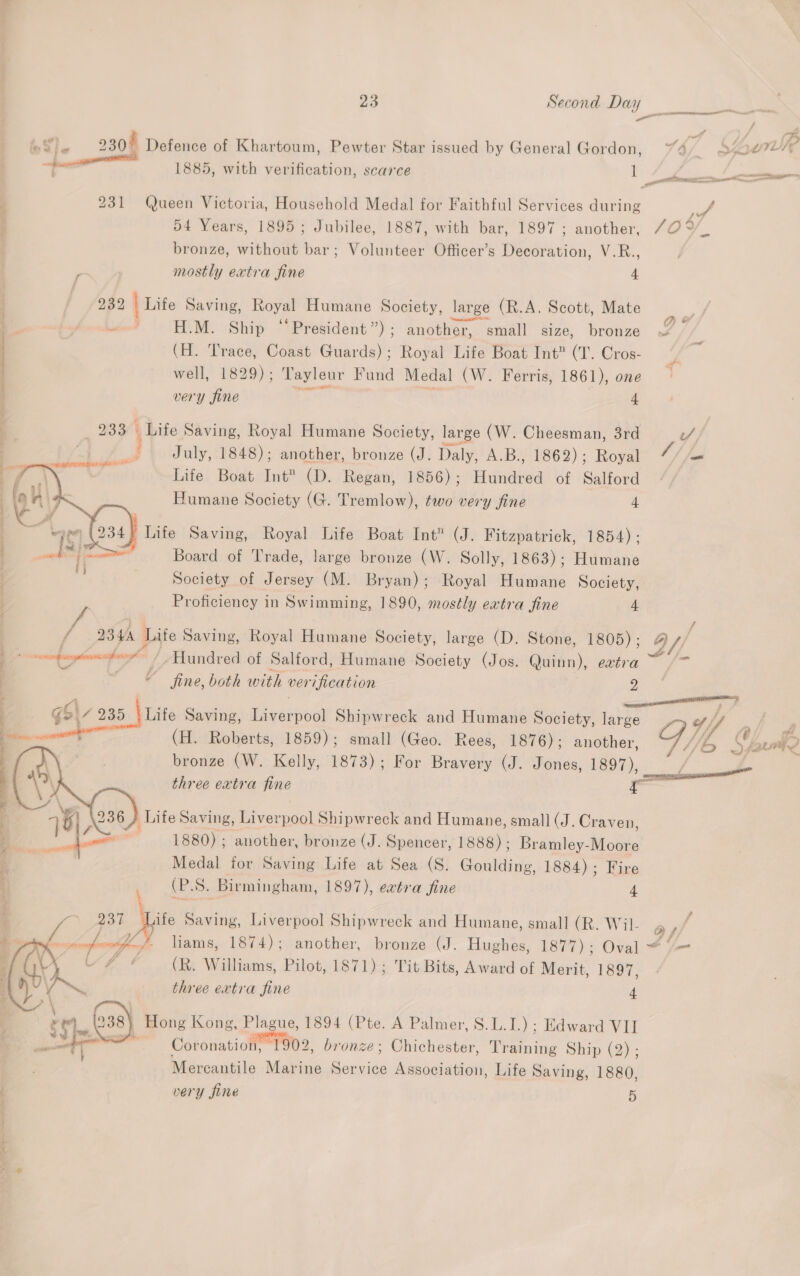 23 Second Day
230 Defence of Khartoum, Pewter Star issued by General Gordon,
1885, with verification, scarce 1
231 Queen Victoria, Household Medal for Faithful Services during
54 Years, 1895; Jubilee, 1887, with bar, 1897; another,
bronze, without bar; Volunteer Officer's Decoration, V.R.,
mostly extra fine 4
232 Life Saving, Royal Humane Society, large (R.A. Scott, Mate
H.M. Ship “President”); another, small size, bronze
(H. Trace, Coast Guards); Royal Life Boat Intn (T. Cros-
well, 1829); Tayleur Fund Medal (W. Ferris, 1861), one
very fine 4
233 Life Saving, Royal Humane Society, large (W. Cheesman, 3rd
July, 1848); another, bronze (J. Daly, A.B., 1862); Royal
Life Boat Intn (D. Regan, 1856); Hundred of Salford
Humane Society (G. Tremlow), two very fine 4
234 Life Saving, Royal Life Boat Intn (J. Fitzpatrick, 1854);
Board of Trade, large bronze (W. Solly, 1863); Humane
Society of Jersey (M. Bryan); Royal Humane Society,
Proficiency in Swimming, 1890, mostly extra fine 4
234A Life Saving, Royal Humane Society, large (D. Stone, 1805);
Hundred of Salford, Humane Society (Jos. Quinn), extra
fine, both with verification 2
235 Life Saving, Liverpool Shipwreck and Humane Society, large
(H. Roberts, 1859); small (Geo. Rees, 1876); another,
bronze (W. Kelly, 1873); For Bravery (J. Jones, 1897),
three extra fine 4
236 Life Saving, Liverpool Shipwreck and Humane, small (J. Craven,
1880); another, bronze (J. Spencer, 1888); Bramley-Moore
Medal for Saving Life at Sea (S. Goulding, 1884); Fire
(P.S. Birmingham, 1897), extra fine 4
237 Life Saving, Liverpool Shipwreck and Humane, small (R. Wil-
liams, 1874); another, bronze (J. Hughes, 1877); Oval
(R. Williams, Pilot, 1871); Tit Bits, Award of Merit, 1897,
three extra fine 4
238 Hong Kong, Plague, 1894 (Pte. A Palmer, S.L.I.); Edward VII
Coronation, 1902, bronze; Chichester, Training Ship (2);
Mercantile Marine Service Association, Life Saving, 1880,
very fine 5